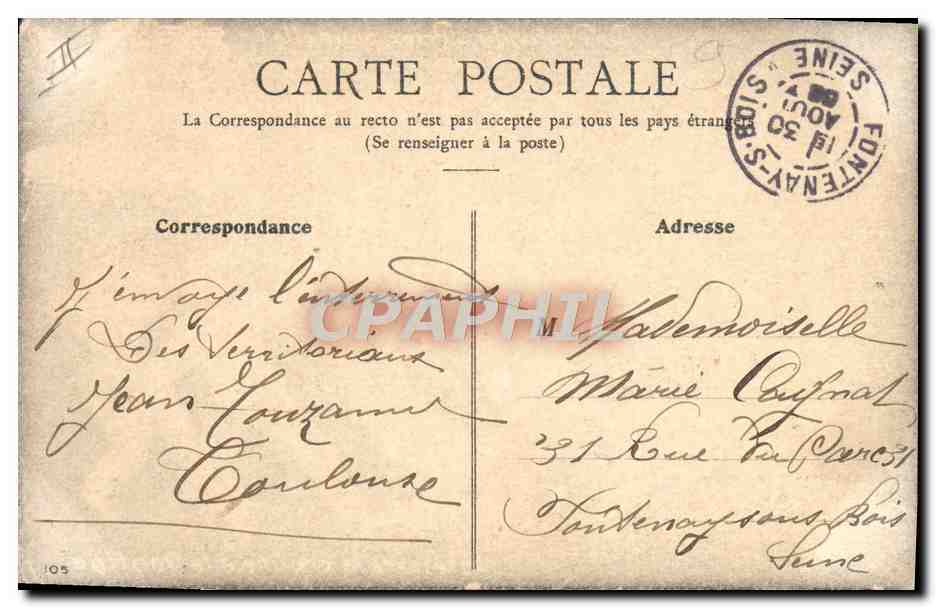 II
CARTE POSTALE
La Correspondance au recto n'est pas acceptée par tous les pays étrangers
(Se renseigner à la poste)
FONTENAY-S-BOIS SEINE
30
AOUT
Correspondance
Adresse
J'envoye l'enterrement
Des Territoriaux
Jean
Toulouse
M Mademoiselle
Marie
31 Rue du Parc 31
Fontenay sous Bois
Seine
105
CPAPHIL